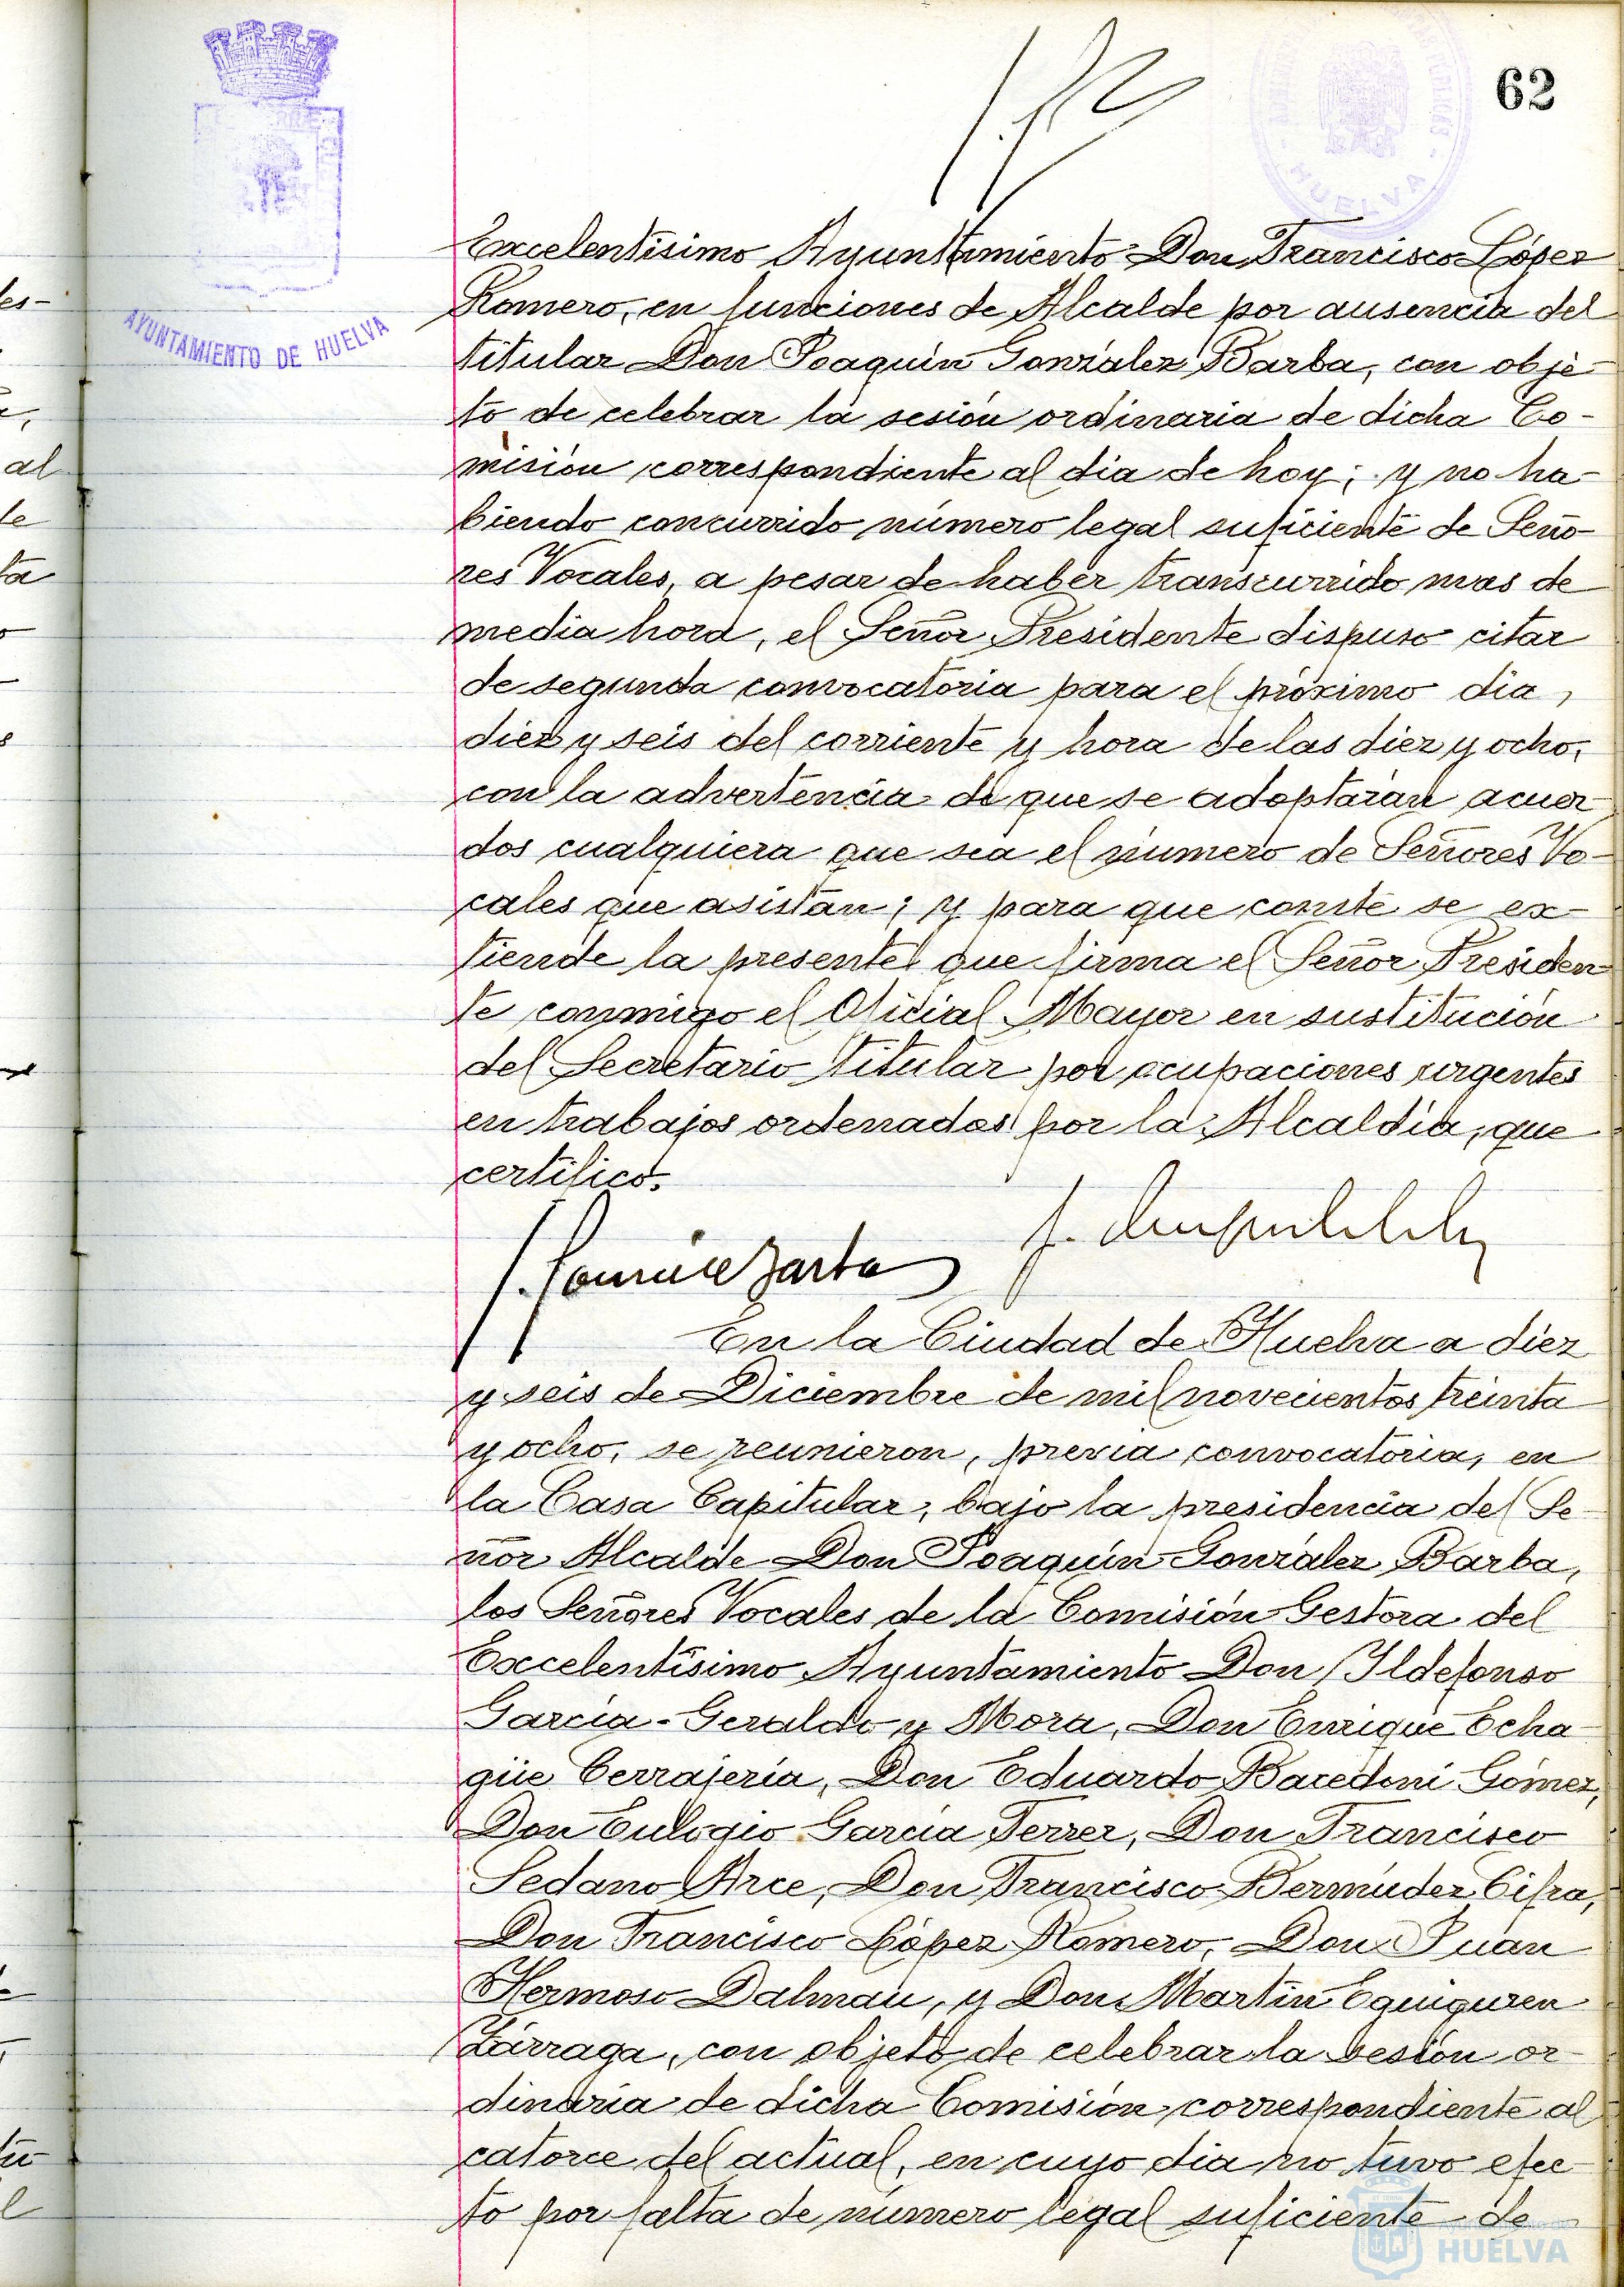 62
AYUNTAMIENTO DE HUELVA
HUELVA
Excelentísimo Ayuntamiento Don Francisco López
Romero, en funciones de Alcalde por ausencia del
titular Don Joaquín González Barba, con obje-
to de celebrar la sesión ordinaria de dicha Co-
misión correspondiente al dia de hoy; y no ha-
biendo concurrido número legal suficiente de Seño-
res Vocales, a pesar de haber transcurrido mas de
media hora, el Señor Presidente dispuso citar
de segunda convocatoria para el próximo dia,
diez y seis del corriente y hora de las diez y ocho,
con la advertencia de que se adoptarán acuer-
dos cualquiera que sea el número de Señores Vo-
cales que asistan; y para que conste se ex-
tiende la presente que firma el Señor Presiden-
te conmigo el Oficial Mayor en sustitución
del Secretario titular por ocupaciones urgentes
en trabajos ordenados por la Alcaldía, que
certifico.
En la Ciudad de Huelva a diez
y seis de Diciembre de mil novecientos treinta
y ocho, se reunieron, previa convocatoria, en
la Casa Capitular, bajo la presidencia del Se-
ñor Alcalde Don Joaquín González Barba,
los Señores Vocales de la Comisión Gestora del
Excelentísimo Ayuntamiento Don Ildefonso
García-Geraldo y Mora, Don Enrique Echa-
güe Cerrajería, Don Eduardo Bacedoni Gómez,
Don Eulogio García Ferrer, Don Francisco
Sedano Arce, Don Francisco Bermúdez Cifra,
Don Francisco López Romero, Don Juan
Hermoso Dalmau, y Don Martín Eguiguren
Zárraga, con objeto de celebrar la sesión or-
dinaria de dicha Comisión correspondiente al
catorce del actual, en cuyo dia no tuvo efec-
to por falta de número legal suficiente de
HUELVA